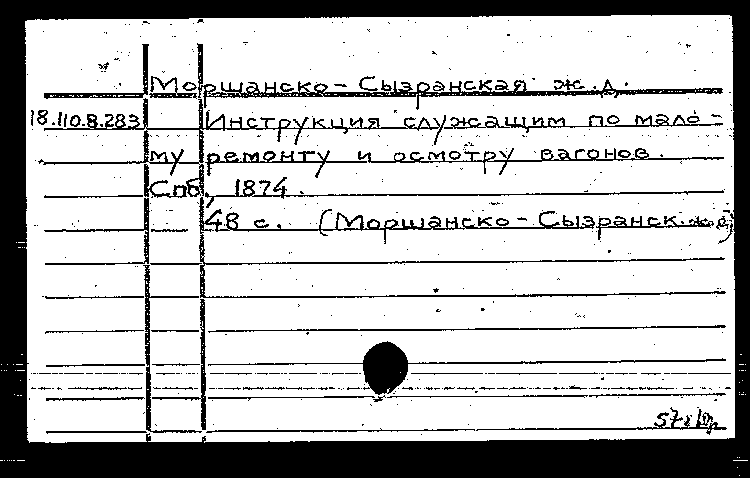 Моршанско-Сызранская ж.д.
18.110.8.283 Инструкция служащим по мало-
му ремонту и осмотру вагонов.
Спб, 1874.
48 с. (Моршанско-Сызранск. ж.д)